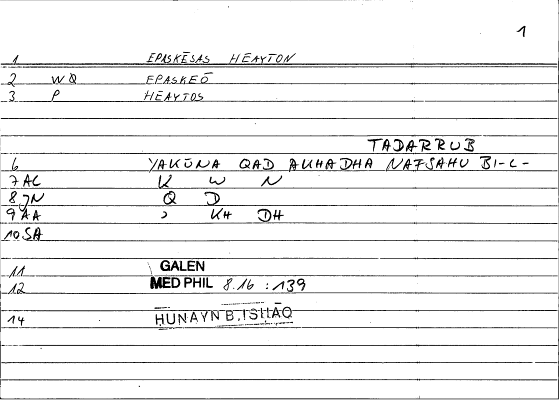 1
1 EPASKĒSAS HEAYTON
2 WQ EPASKEŌ
3 P HEAYTOS
TADARRUB
6 YAKŪNA QAD AKHADHA NAFSAHU BI-L-
7 AC K W N
8 JN Q D
9 AA ʾ KH DH
10 SA
11 GALEN
12 MED PHIL 8.16 : 139
14 HUNAYN B. ISHĀQ